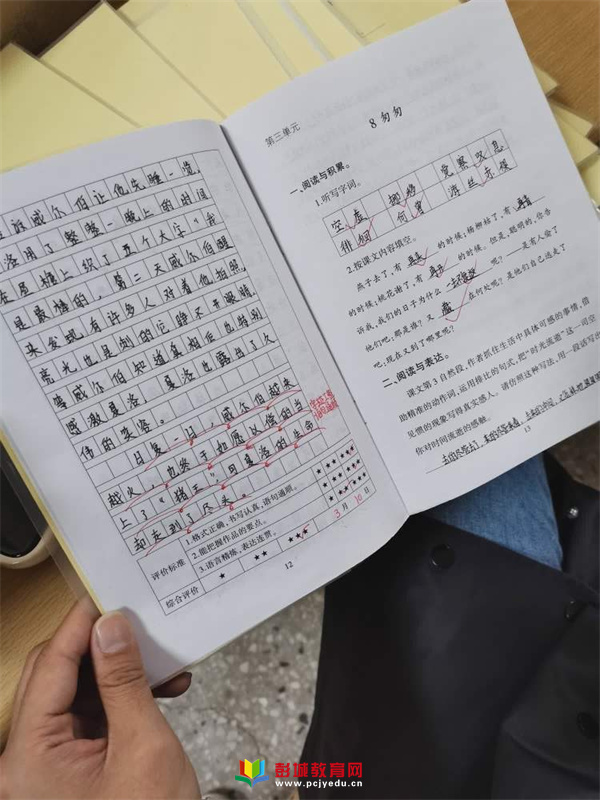 且放威尔伯让他先睡一觉,
洛用了整整一晚上的时间
在屋檐上织了五个大字"我
是最棒的,第二天威尔伯醒
来发现有许多人对着他拍照,
亮光
等威尔伯知道真相后也特别
感激夏洛,夏洛也露出了久
伟的笑容。
日复一日,威尔伯越来
越火,也终于如愿以偿的当
上了"猪王",可夏洛的生命
却走到了尽头。
评价标准
1.格式正确,书写认真,语句通顺。
2.能把握作品的要点。
3.语言精炼,表达连贯。
综合评价
★
★★
★★★
3月10日
12
第三单元
8 匆匆
一、阅读与积累。
1.听写字词。
空虚 挪移 觉察 叹息
徘徊 何曾 游丝
2.按课文内容填空。
燕子去了,有再来的时候;杨柳枯了,有再青
的时候;桃花谢了,有再开的时候。但是,聪明的,你告
诉我,我们的日子为什么一去不复返呢?——是有人偷了
他们吧:那是谁?又藏在何处呢?是他们自己逃走了
吧:现在又到了哪里呢?
二、阅读与表达。
课文第3自然段,作者抓住生活中具体可感的事情,借
助精准的动作词,运用排比的句式,把"时光流逝"这一司空
见惯的现象写得真实感人。请仿照这种写法,用一段话写出
你对时间流逝的感触。
去的尽管去了,来的尽管来着,
13
彭城教育网
www.pcjyedu.cn